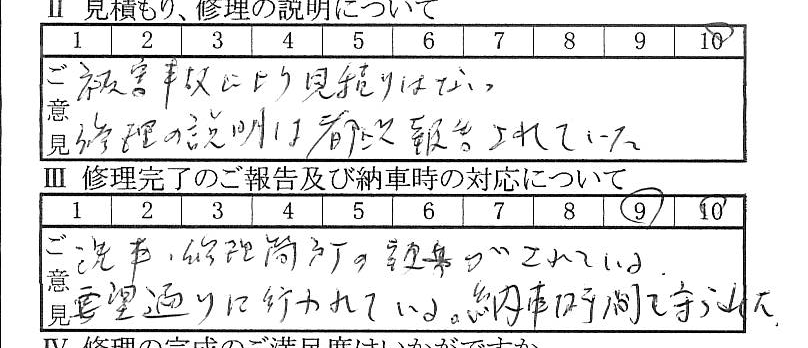 II 見積もり、修理の説明について
1 2 3 4 5 6 7 8 9 10
ご意見
被害事故により見積りはない
修理の説明は都度報告されていた
III 修理完了のご報告及び納車時の対応について
1 2 3 4 5 6 7 8 9 10
ご意見
洗車、修理箇所の説明がされている.
要望通りに行われている。納車時間も守られた.
IV 修理の完成のご満足度はいかがですか